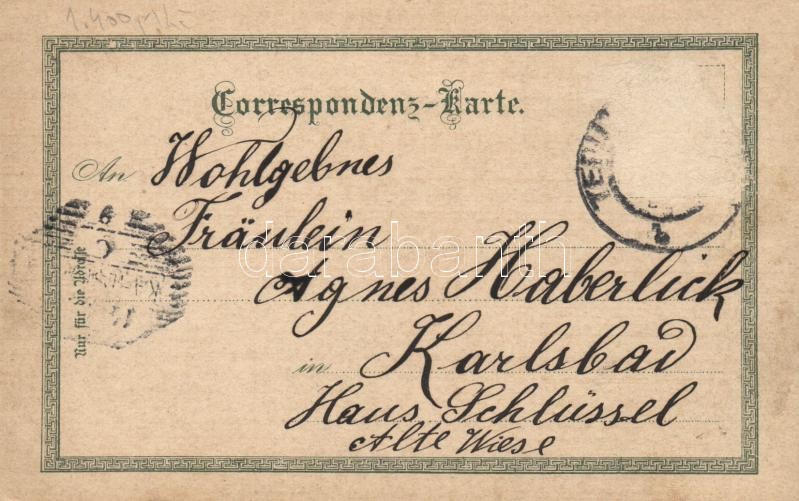 1.400
Correspondenz-Karte.
An Wohlgebnes
Fräulein
Agnes Haberlick
in Karlsbad
Haus Schlüssel
Alte Wiese
Nur für die Adresse
darabanth